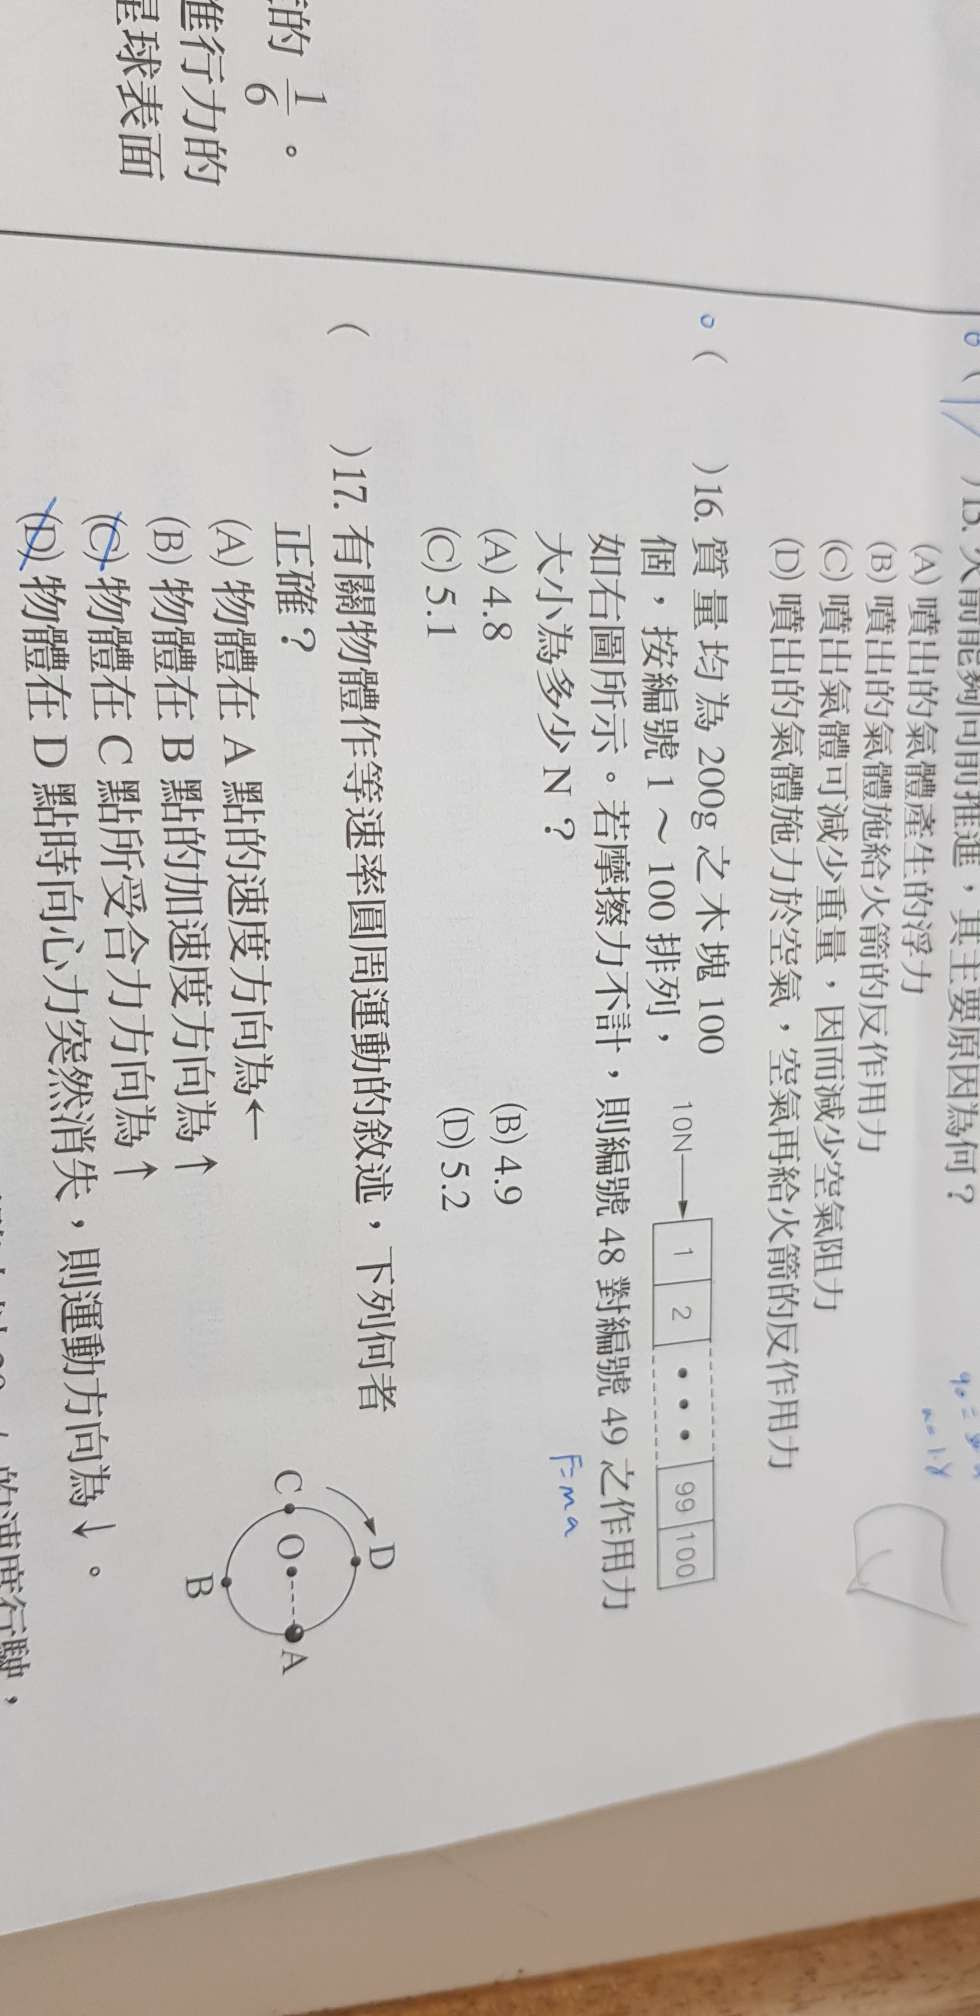 的 1/6 。
進行力的
星球表面
)15. 火箭能夠向前推進，其主要原因為何？
(A) 噴出的氣體產生的浮力
(B) 噴出的氣體施給火箭的反作用力
(C) 噴出氣體可減少重量，因而減少空氣阻力
(D) 噴出的氣體施力於空氣，空氣再給火箭的反作用力
a=1.8
( )16. 質量均為 200g 之木塊 100
個，按編號 1 ～ 100 排列，
10N
1 2 • • • 99 100
如右圖所示。若摩擦力不計，則編號 48 對編號 49 之作用力
大小為多少 N？
F=ma
(A) 4.8 (B) 4.9
(C) 5.1 (D) 5.2
( )17. 有關物體作等速率圓周運動的敘述，下列何者
正確？
(A) 物體在 A 點的速度方向為←
(B) 物體在 B 點的加速度方向為↑
(C) 物體在 C 點所受合力方向為↑
(D) 物體在 D 點時向心力突然消失，則運動方向為↓。
D
C O A
B
的速度行駛，